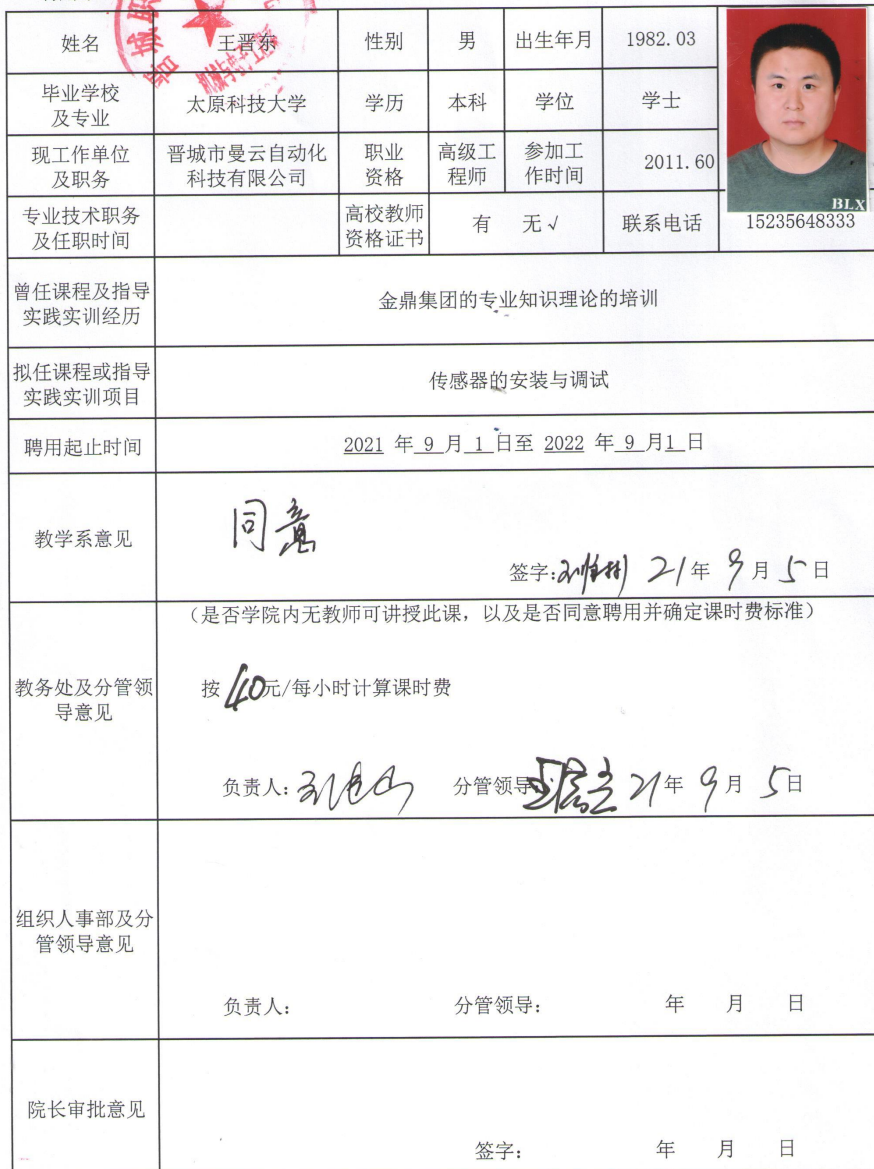 姓名 王晋东 性别 男 出生年月 1982.03
毕业学校
及专业 太原科技大学 学历 本科 学位 学士
现工作单位
及职务 晋城市曼云自动化
科技有限公司 职业
资格 高级工
程师 参加工
作时间 2011.60
BLX
专业技术职务
及任职时间 高校教师
资格证书 有 无√ 联系电话 15235648333
曾任课程及指导
实践实训经历 金鼎集团的专业知识理论的培训
拟任课程或指导
实践实训项目 传感器的安装与调试
聘用起止时间 2021 年 9 月 1 日至 2022 年 9 月1 日
教学系意见 同意
签字: 21年 9月 5日
(是否学院内无教师可讲授此课，以及是否同意聘用并确定课时费标准)
教务处及分管领
导意见 按 40元/每小时计算课时费
负责人: 分管领导 21年 9月 5日
组织人事部及分
管领导意见
负责人: 分管领导: 年 月 日
院长审批意见
签字: 年 月 日